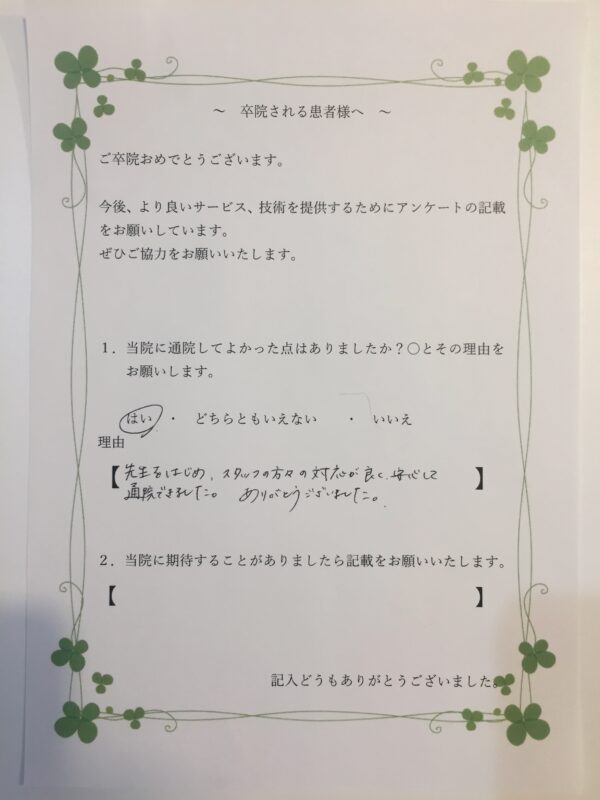 ～ 卒院される患者様へ ～
ご卒院おめでとうございます。
今後、より良いサービス、技術を提供するためにアンケートの記載
をお願いしています。
ぜひご協力をお願いいたします。
１．当院に通院してよかった点はありましたか？〇とその理由を
お願いします。
はい ・ どちらともいえない ・ いいえ
理由
【先生をはじめ、スタッフの方々の対応が良く、安心して
通院できました。 ありがとうございました。】
２．当院に期待することがありましたら記載をお願いいたします。
【 】
記入どうもありがとうございました。